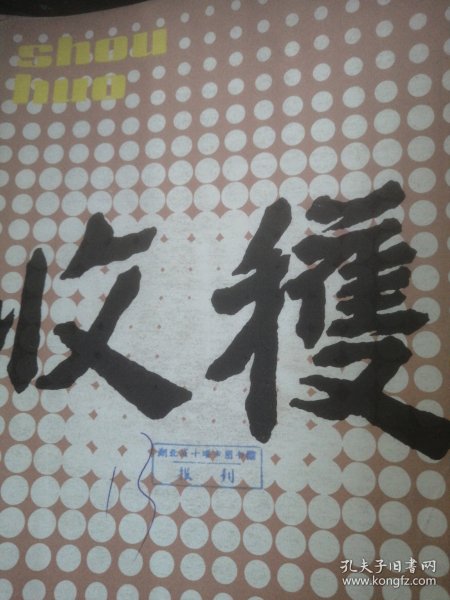 shou
huo
收穫
湖北省十堰市图书馆
报刊
孔夫子旧书网
www.kongfz.com